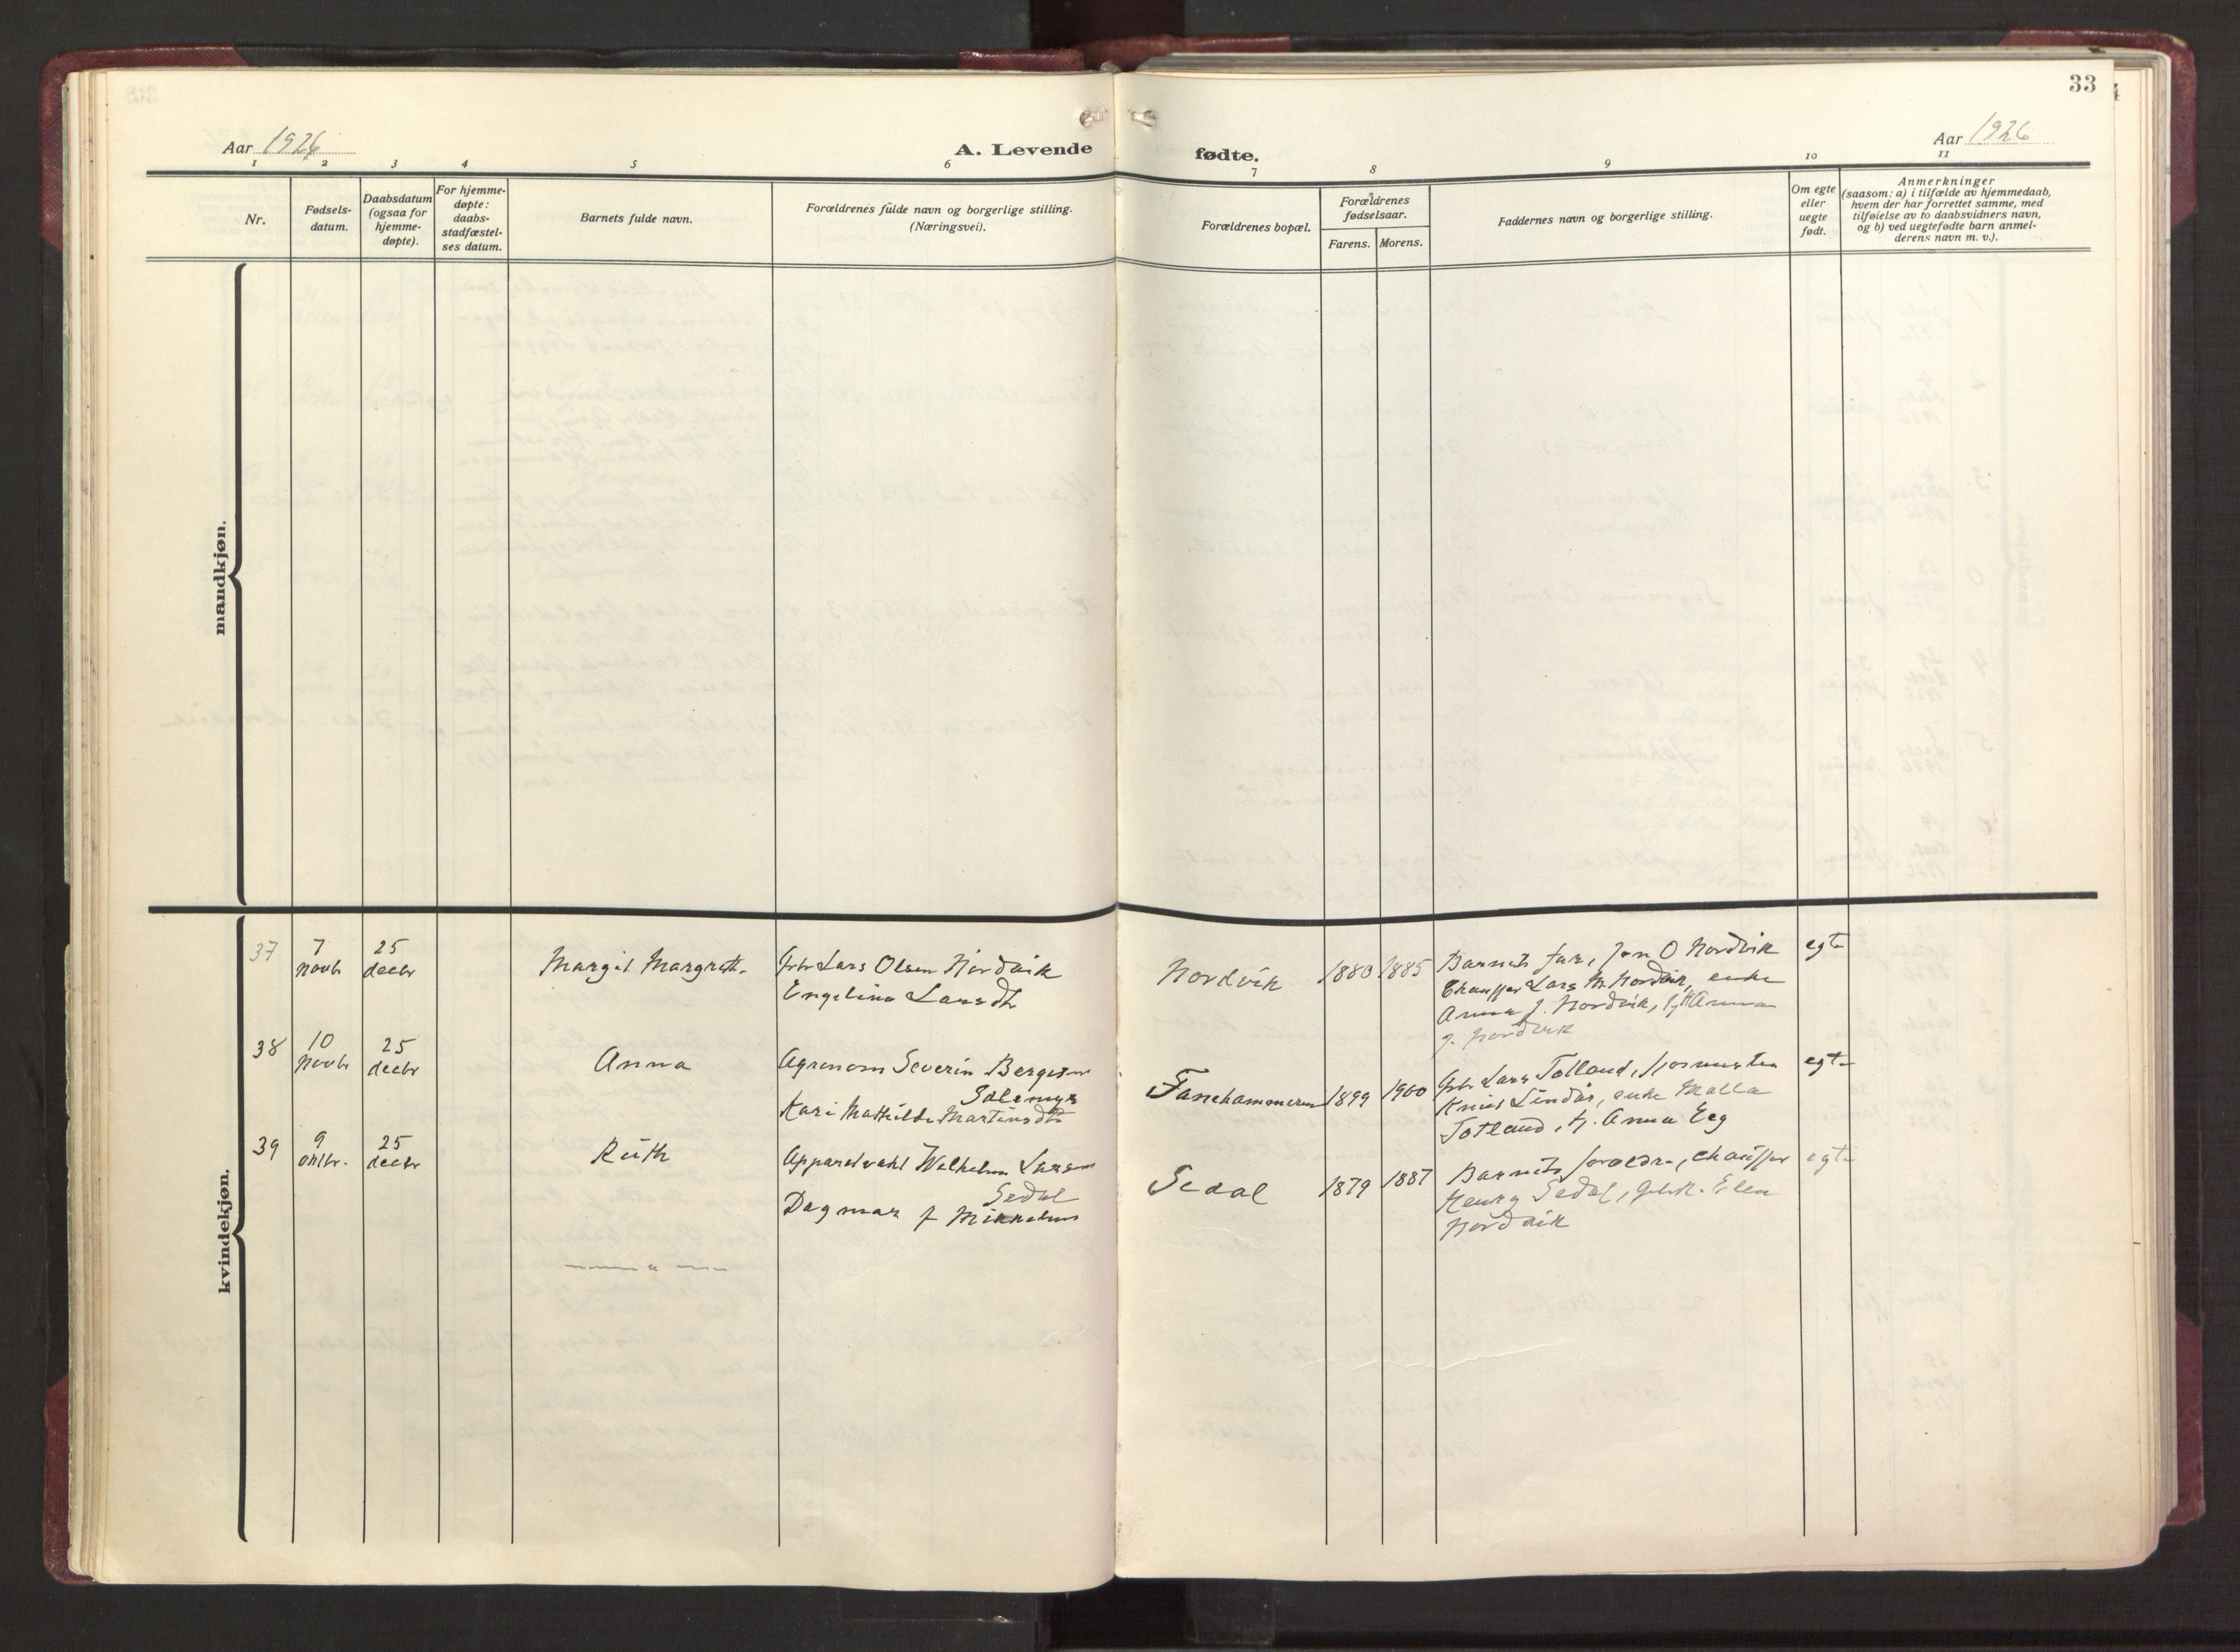 33
Aar 1926
A. Levende
fødte.
Aar 1926
1 2 3 4 5 6 7 8 9 10 11
Nr.
Fødsels-
datum.
Daabsdatum
(ogsaa for
hjemme-
døpte).
For hjemme-
døpte:
daabs-
stadfæstel-
ses datum.
Barnets fulde navn.
Forældrenes fulde navn og borgerlige stilling.
(Næringsvei).
Forældrenes bopæl.
Forældrenes
fødselsaar.
Farens. Morens.
Faddernes navn og borgerlige stilling.
Om egte
eller
uegte
født.
Anmerkninger
(saasom: a) i tilfælde av hjemmedaab,
hvem der har forrettet samme, med
tilføielse av to daabsvidners navn,
og b) ved uegtefødte barn anmel-
derens navn m. v.).
mandkjøn.
kvindekjøn.
37
7
novbr
25
decbr
Margit Margrethe
Gbr Lars Olsen Nordvik
Engeline Larsdtr
Nordvik
1880 1885
Barnets far, Jon O Nordvik
Chauffør Lars M. Nordvik, enke
Anna J. Nordvik, Anna
J. Nordvik
egte
38
10
novbr
25
decbr
Anna
Agronom Severin Bergesen
Solemyr
Kari Mathilde Martinsdtr
Fanehammeren
1899 1900
Gbr Lars Totland,
Knut Lindås, enke Malla
Totland, fr. Anna Eeg
egte
39
9
oktbr.
25
decbr
Ruth
Wilhelm Larsen
Sedal
Dagmar f. Mikkelsen
Sedal
1879 1887
Barnets foreldre, chauffør
Henry Sedal, Ellen
Nordvik
egte